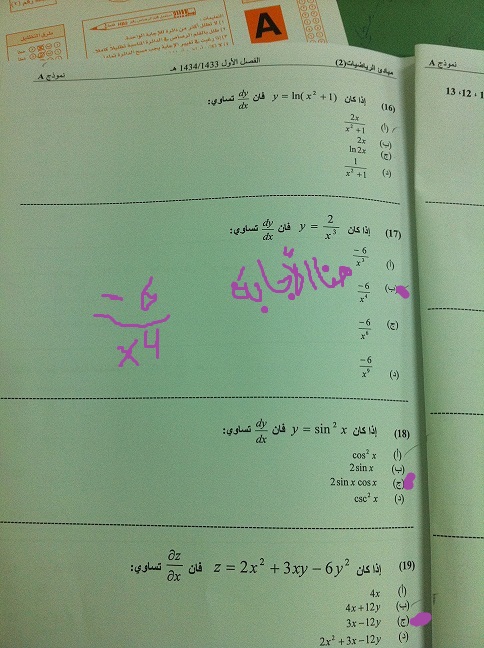 التعليمات:
A
نموذج A
مبادئ الرياضيات(2)
الفصل الأول 1434/1433 هـ
نموذج A
13 ،12 ،1
(16) إذا كان y = ln(x² + 1) فان dy/dx تساوي:
(أ) 2x/(x² + 1)
(ب) 2x
(ج) ln 2x
(د) 1/(x² + 1)
(17) إذا كان y = 2/x³ فان dy/dx تساوي:
(أ) -6/x²
(ب) -6/x⁴
(ج) -6/x⁶
(د) -6/x⁹
هنا الأجابه
-6/x4
(18) إذا كان y = sin² x فان dy/dx تساوي:
(أ) cos² x
(ب) 2 sin x
(ج) 2 sin x cos x
(د) csc² x
(19) إذا كان z = 2x² + 3xy − 6y² فان ∂z/∂x تساوي:
(أ) 4x
(ب) 4x + 12y
(ج) 3x − 12y
(د) 2x² + 3x − 12y